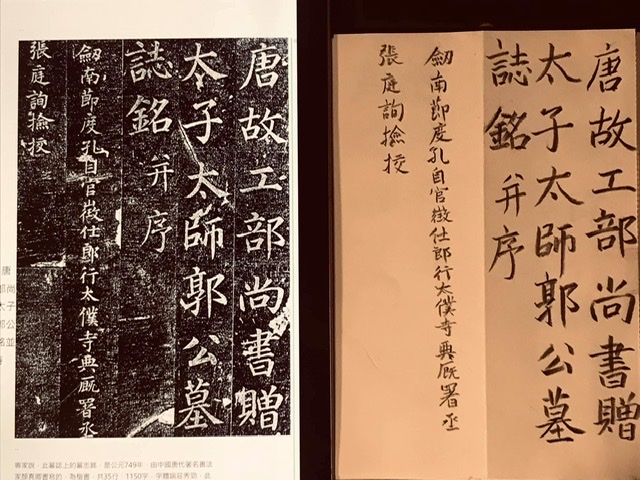 唐故工部尚書贈
太子太師郭公墓
誌銘并序
劒南節度孔自官徵仕郎行太僕寺典廐署丞
張庭詢撿挍
專家說，此墓誌上的墓志銘，是公元749年，由中國唐代著名書法
家顏真卿書寫的，為楷書，共35行，1150字，字體端莊秀勁，此
唐故工部尚書贈
太子太師郭公墓
誌銘并序
劒南節度孔自官徵仕郎行太僕寺典廐署丞
張庭詢撿挍